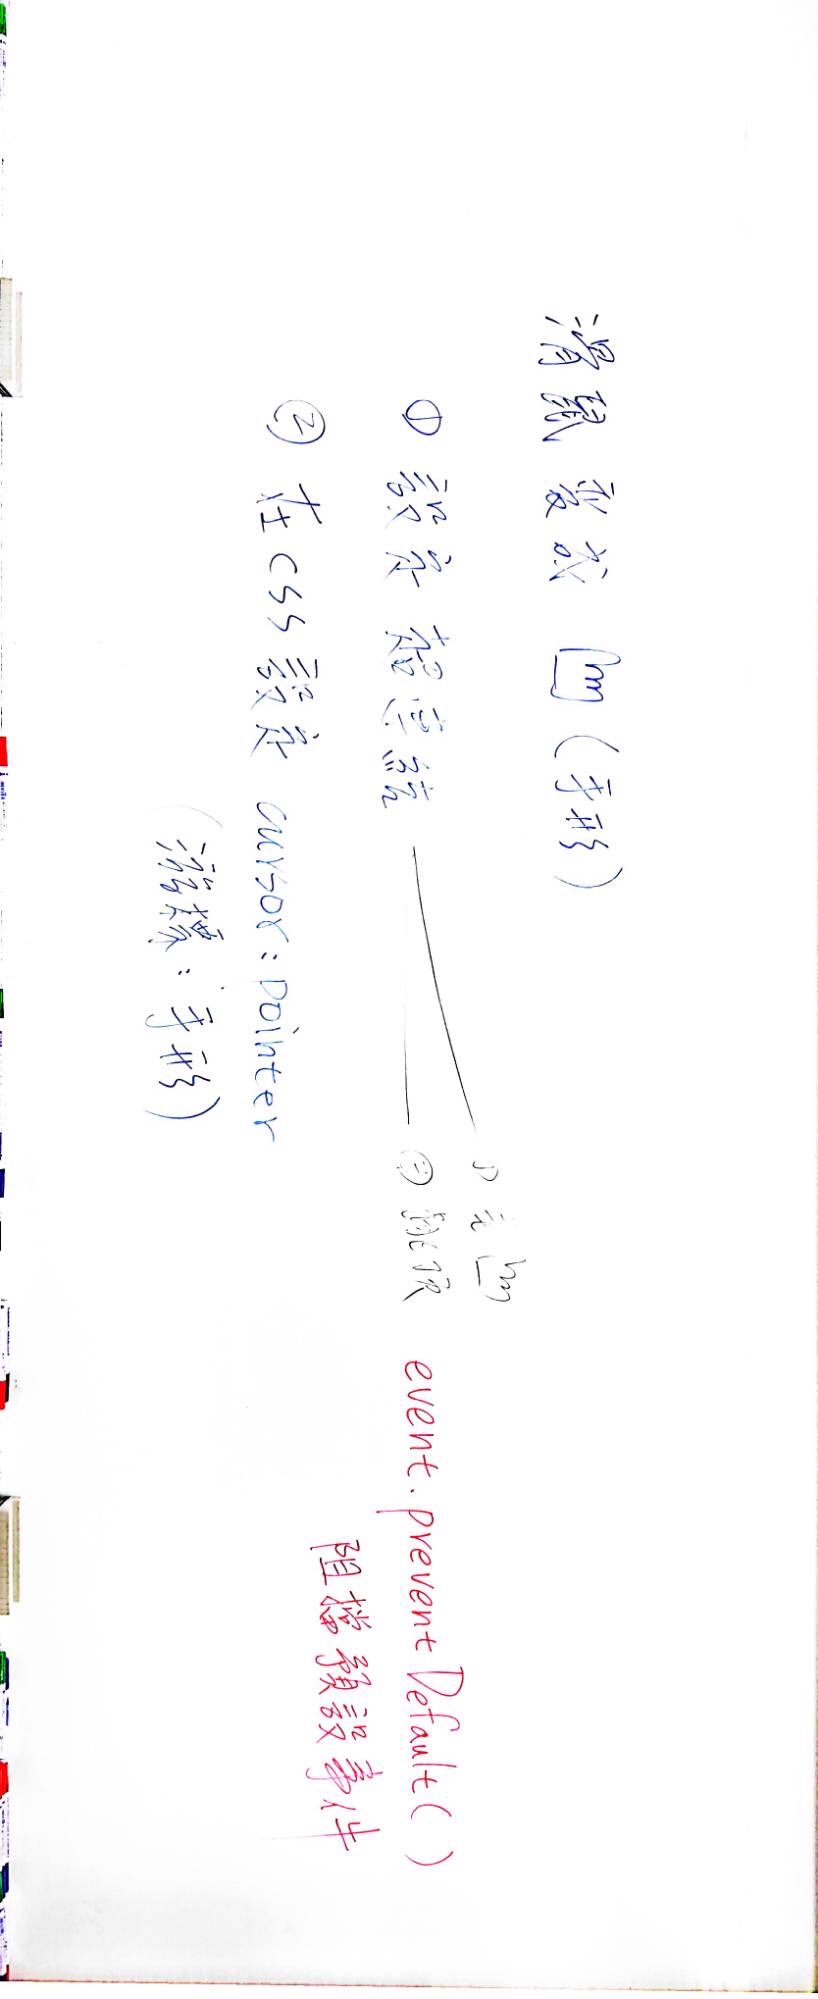 滑鼠變成 (手形)
① 設定 超連結
① 變
② 跳頁 event.preventDefault()
阻擋預設事件
② 在 CSS 設定 cursor: pointer
(游標: 手形)